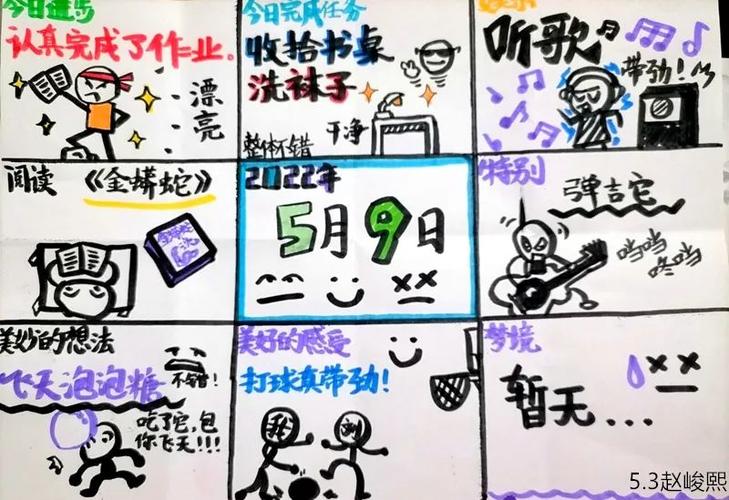 今日进步
认真完成了作业。
漂亮
今日完成任务
收拾书桌
洗袜子
干净
整体不错
听歌
带劲!
阅读 《金蟒蛇》
2022年
5月9日
特别
弹吉它
咚咚
美妙的想法
飞天泡泡糖
不错!
吃了它,包
你飞天!!!
美好的感受
打球真带劲!
我
梦境
暂无...
5.3赵峻熙